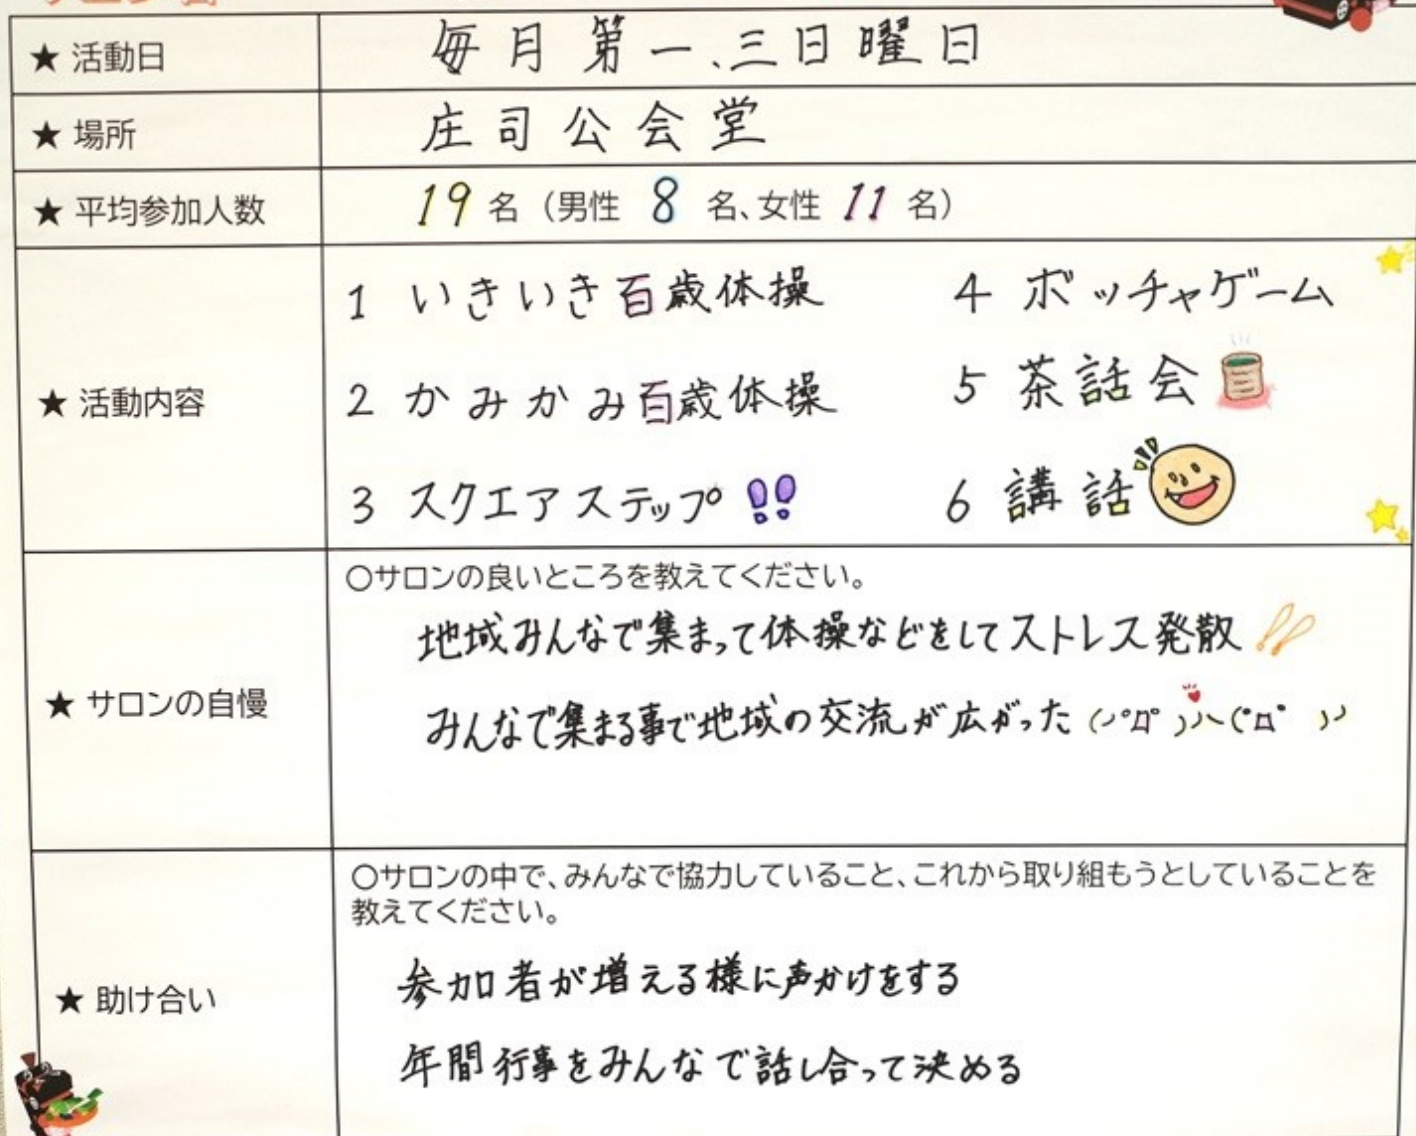 ★ 活動日
毎月第一、三日曜日
★ 場所
庄司公会堂
★ 平均参加人数
19 名（男性 8 名、女性 11 名）
★ 活動内容
1 いきいき百歳体操
2 かみかみ百歳体操
3 スクエアステップ!!
4 ボッチャゲーム
5 茶話会
6 講話
★ サロンの自慢
○サロンの良いところを教えてください。
地域みんなで集まって体操などをしてストレス発散!!
みんなで集まる事で地域の交流が広がった (ﾉ゚ﾛ゚)ﾉ＼(゚ﾛ゚ )ﾉ
★ 助け合い
○サロンの中で、みんなで協力していること、これから取り組もうとしていることを
教えてください。
参加者が増える様に声かけをする
年間行事をみんなで話し合って決める